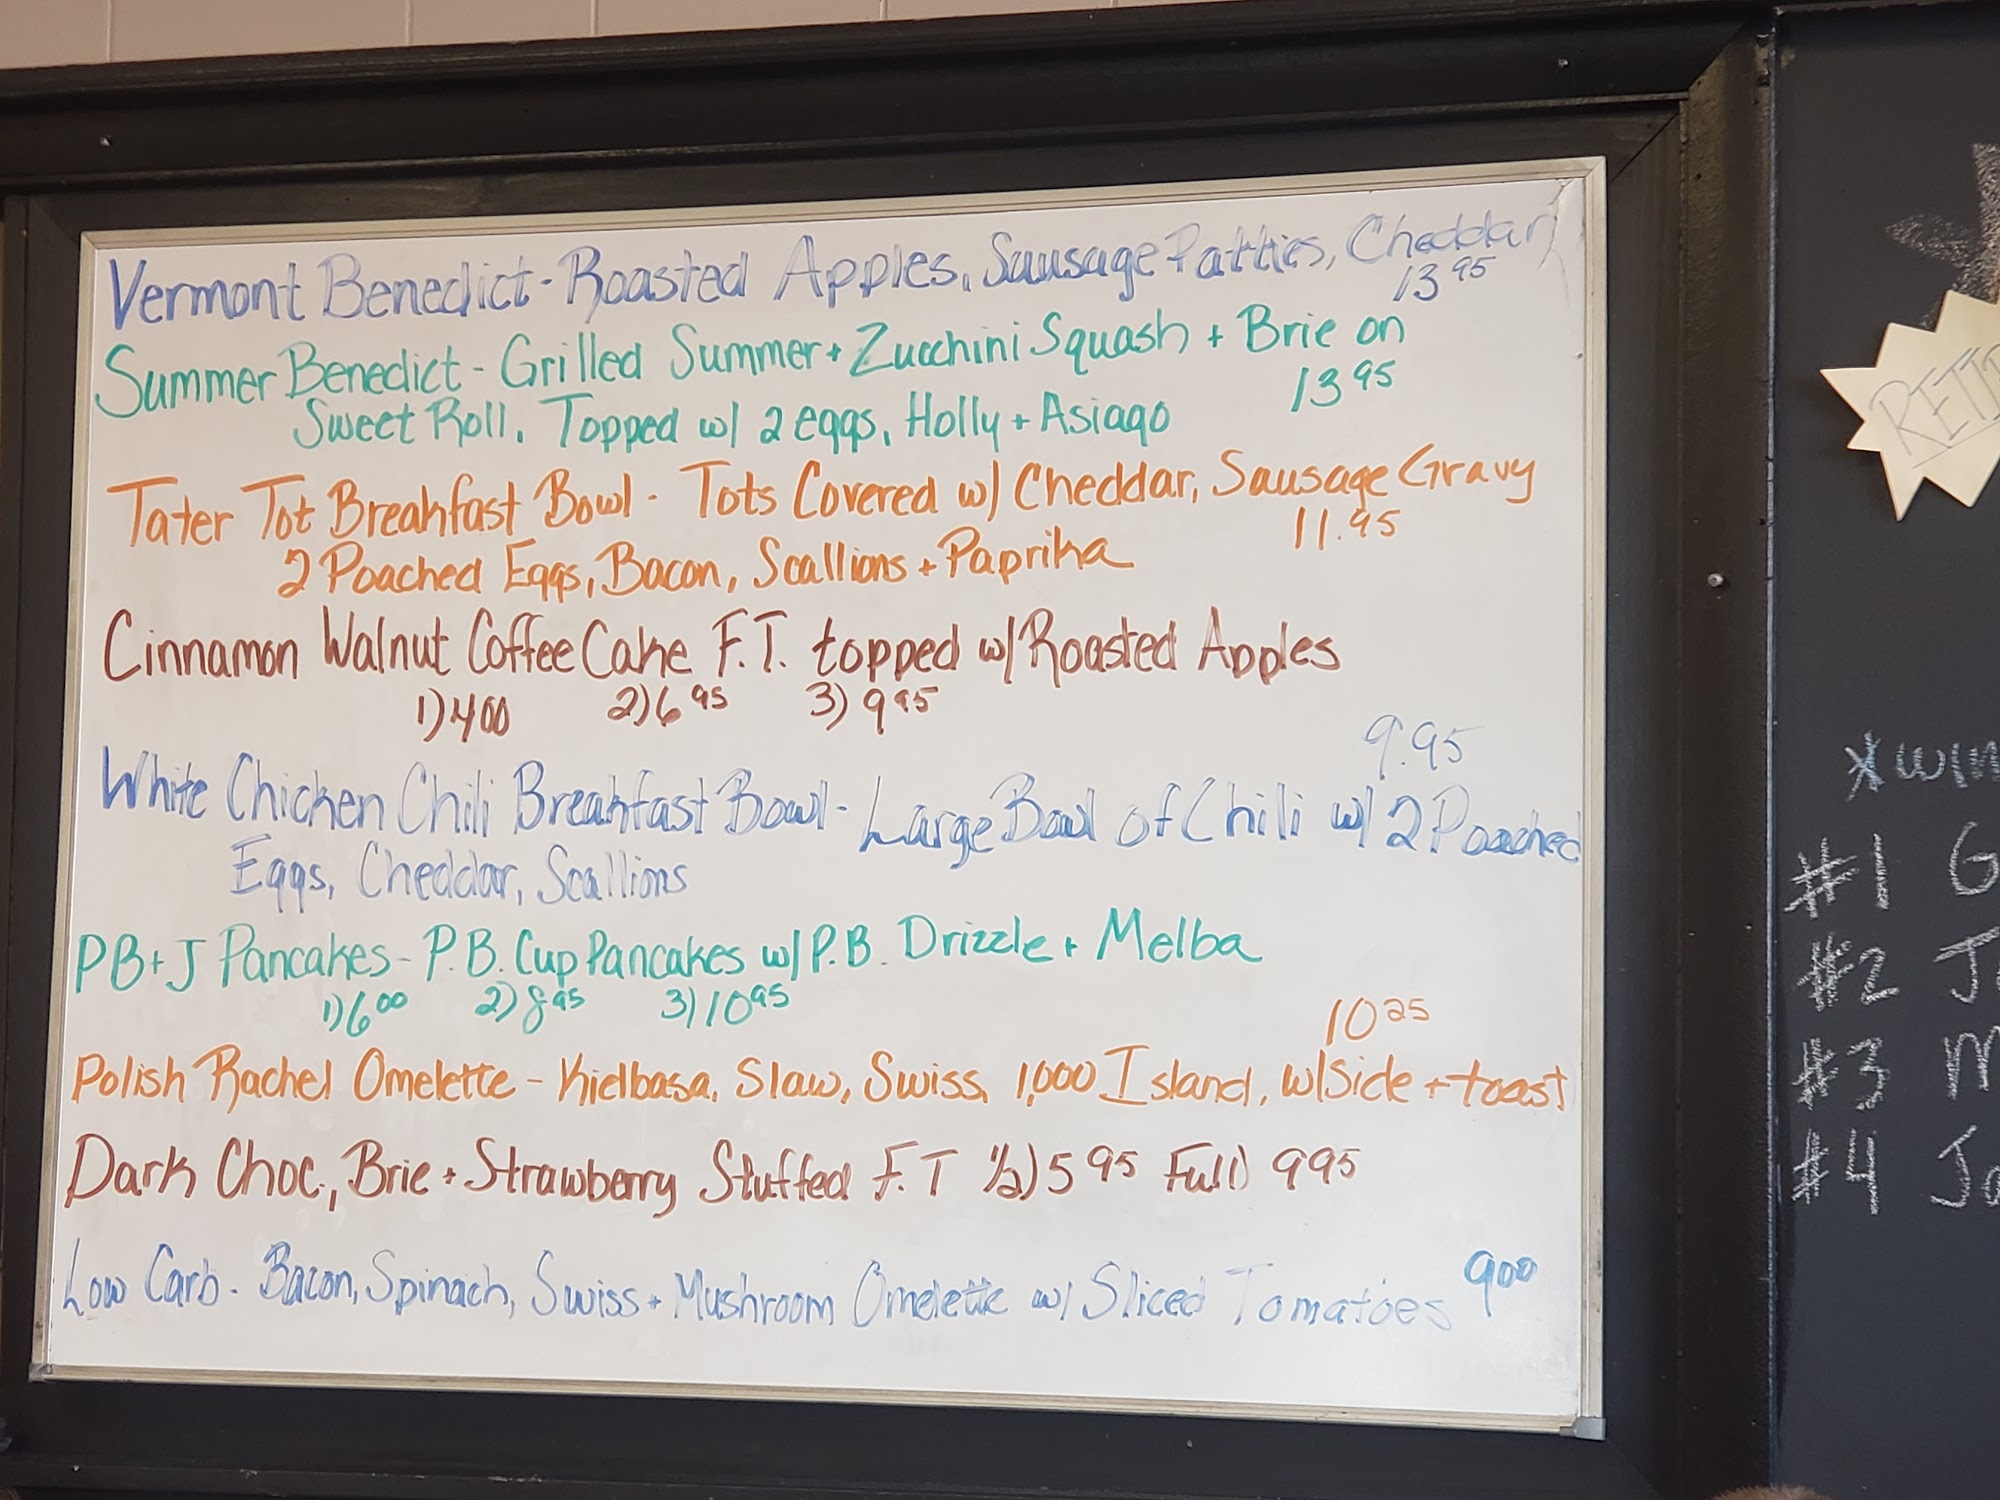 Vermont Benedict - Roasted Apples, Sausage Patties, Cheddar
13 95
Summer Benedict - Grilled Summer + Zucchini Squash + Brie on
13 95
Sweet Roll, Topped w/ 2 eggs, Holly + Asiago
Tater Tot Breakfast Bowl - Tots Covered w/ Cheddar, Sausage Gravy
11.95
2 Poached Eggs, Bacon, Scallions + Paprika
Cinnamon Walnut Coffee Cake F.T. topped w/ Roasted Apples
1) 4 00 2) 6 95 3) 9 95
9.95
White Chicken Chili Breakfast Bowl - Large Bowl of Chili w/ 2 Poached
Eggs, Cheddar, Scallions
PB + J Pancakes - P.B. Cup Pancakes w/ P.B. Drizzle + Melba
1) 6 00 2) 8 95 3) 10 95
10 25
Polish Rachel Omelette - Kielbasa, Slaw, Swiss, 1,000 Island, w/ Side + toast
Dark Choc., Brie + Strawberry Stuffed F.T 1/2) 5 95 Full) 9 95
Low Carb - Bacon, Spinach, Swiss + Mushroom Omelette w/ Sliced Tomatoes 9 00
#1 G
#2 J
#3 M
#4 Jo